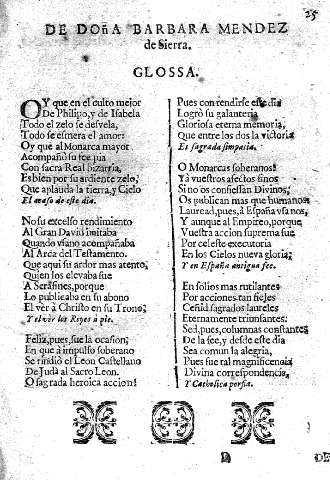 25
DE DOñA BARBARA MENDEZ
de Sierra.
GLOSSA.
OY que en el culto mejor
De Philipo, y de Isabela
Todo el zelo se desvela,
Todo se esmera el amor:
Oy que al Monarca mayor
Acompañò su fee pia
Con sacra Real bizarria,
Es bien por su ardiente zelo,
Que aplauda la tierra, y Cielo
El acaso de este dia.
No su excelso rendimiento
Al Gran David imitaba
Quando vfano acompañaba
Al Arca del Testamento.
Que aqui su ardor mas atento,
Quien los elevaba fue
A Serafines, porque
Lo publicaba en su abono
El vèr à Christo en su Trono,
Y el vèr los Reyes à pie.
Feliz, pues, fue la ocasion,
En que à impulso soberano
Se rindiò el Leon Castellano
De Judà al Sacro Leon.
O sagrada heroica accion!
Pues con rendirse este dia
Logrò su galanteria
Gloriosa eterna memoria,
Que entre los dos la victoria
Es sagrada simpatia.
O Monarcas soberanos!
Yà vuestros afectos finos
Si no os confiessan Divinos,
Os publican mas que humanos
Lauread, pues, à España vfanos,
Y aunque al Empireo, porque
Vuestra accion suprema fue
Por celeste executoria
En los Cielos nueva gloria;
Y en España antigua fee.
En folios mas rutilantes
Por acciones tan fieles
Ceñid sagrados laureles
Eternamente triunfantes:
Sed, pues, columnas constantes
De la fee, y desde este dia
Sea comun la alegria,
Pues fue tal magnificencia
Divina correspondencia,
Y Catholica porfia.
D
DE